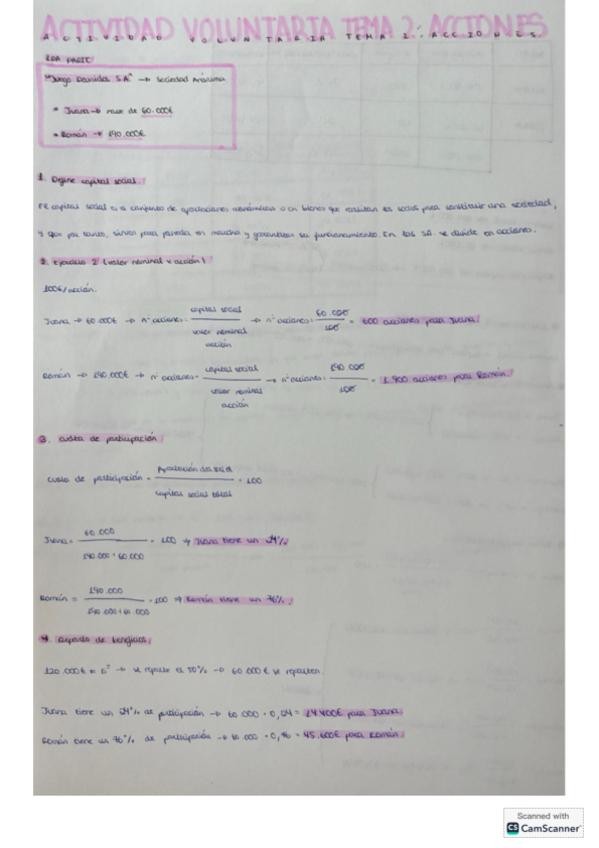 ACTIVIDAD VOLUNTARIA TEMA 2: ACCIONES
ACTIVIDAD VOLUNTARIA TEMA 2: ACCIONES.
PARTE:
S.A" → Sociedad Anónima
• Juana → de 60.000€
• Román → 190.000€
1. Define capital social.
El capital social es el conjunto de aportaciones económicas o en bienes que realizan los socios para constituir una sociedad,
y que por tanto, sirven para ponerla en marcha y garantizar su funcionamiento. En las SA. se divide en acciones.
2. Ejercicio 2 (valor nominal x acción)
100€/acción.
Juana → 60.000€ → nº acciones = capital social / valor nominal acción → nº acciones = 60.000 / 100 = 600 acciones para Juana.
Román → 190.000€ → nº acciones = capital social / valor nominal acción → nº acciones = 190.000 / 100 = 1.900 acciones para Román.
3. cuota de participación
cuota de participación = Aportación del social / capital social total · 100
Juana = 60.000 / 190.000 + 60.000 · 100 ⇒ Juana tiene un 24%
Román = 190.000 / 190.000 + 60.000 · 100 ⇒ Román tiene un 76%
4. Reparto de beneficios
120.000€ → se reparte el 50% → 60.000€ se reparten.
Juana tiene un 24% de participación → 60.000 · 0,24 = 14.400€ para Juana.
Román tiene un 76% de participación → 60.000 · 0,76 = 45.600€ para Román.
Scanned with
CS CamScanner